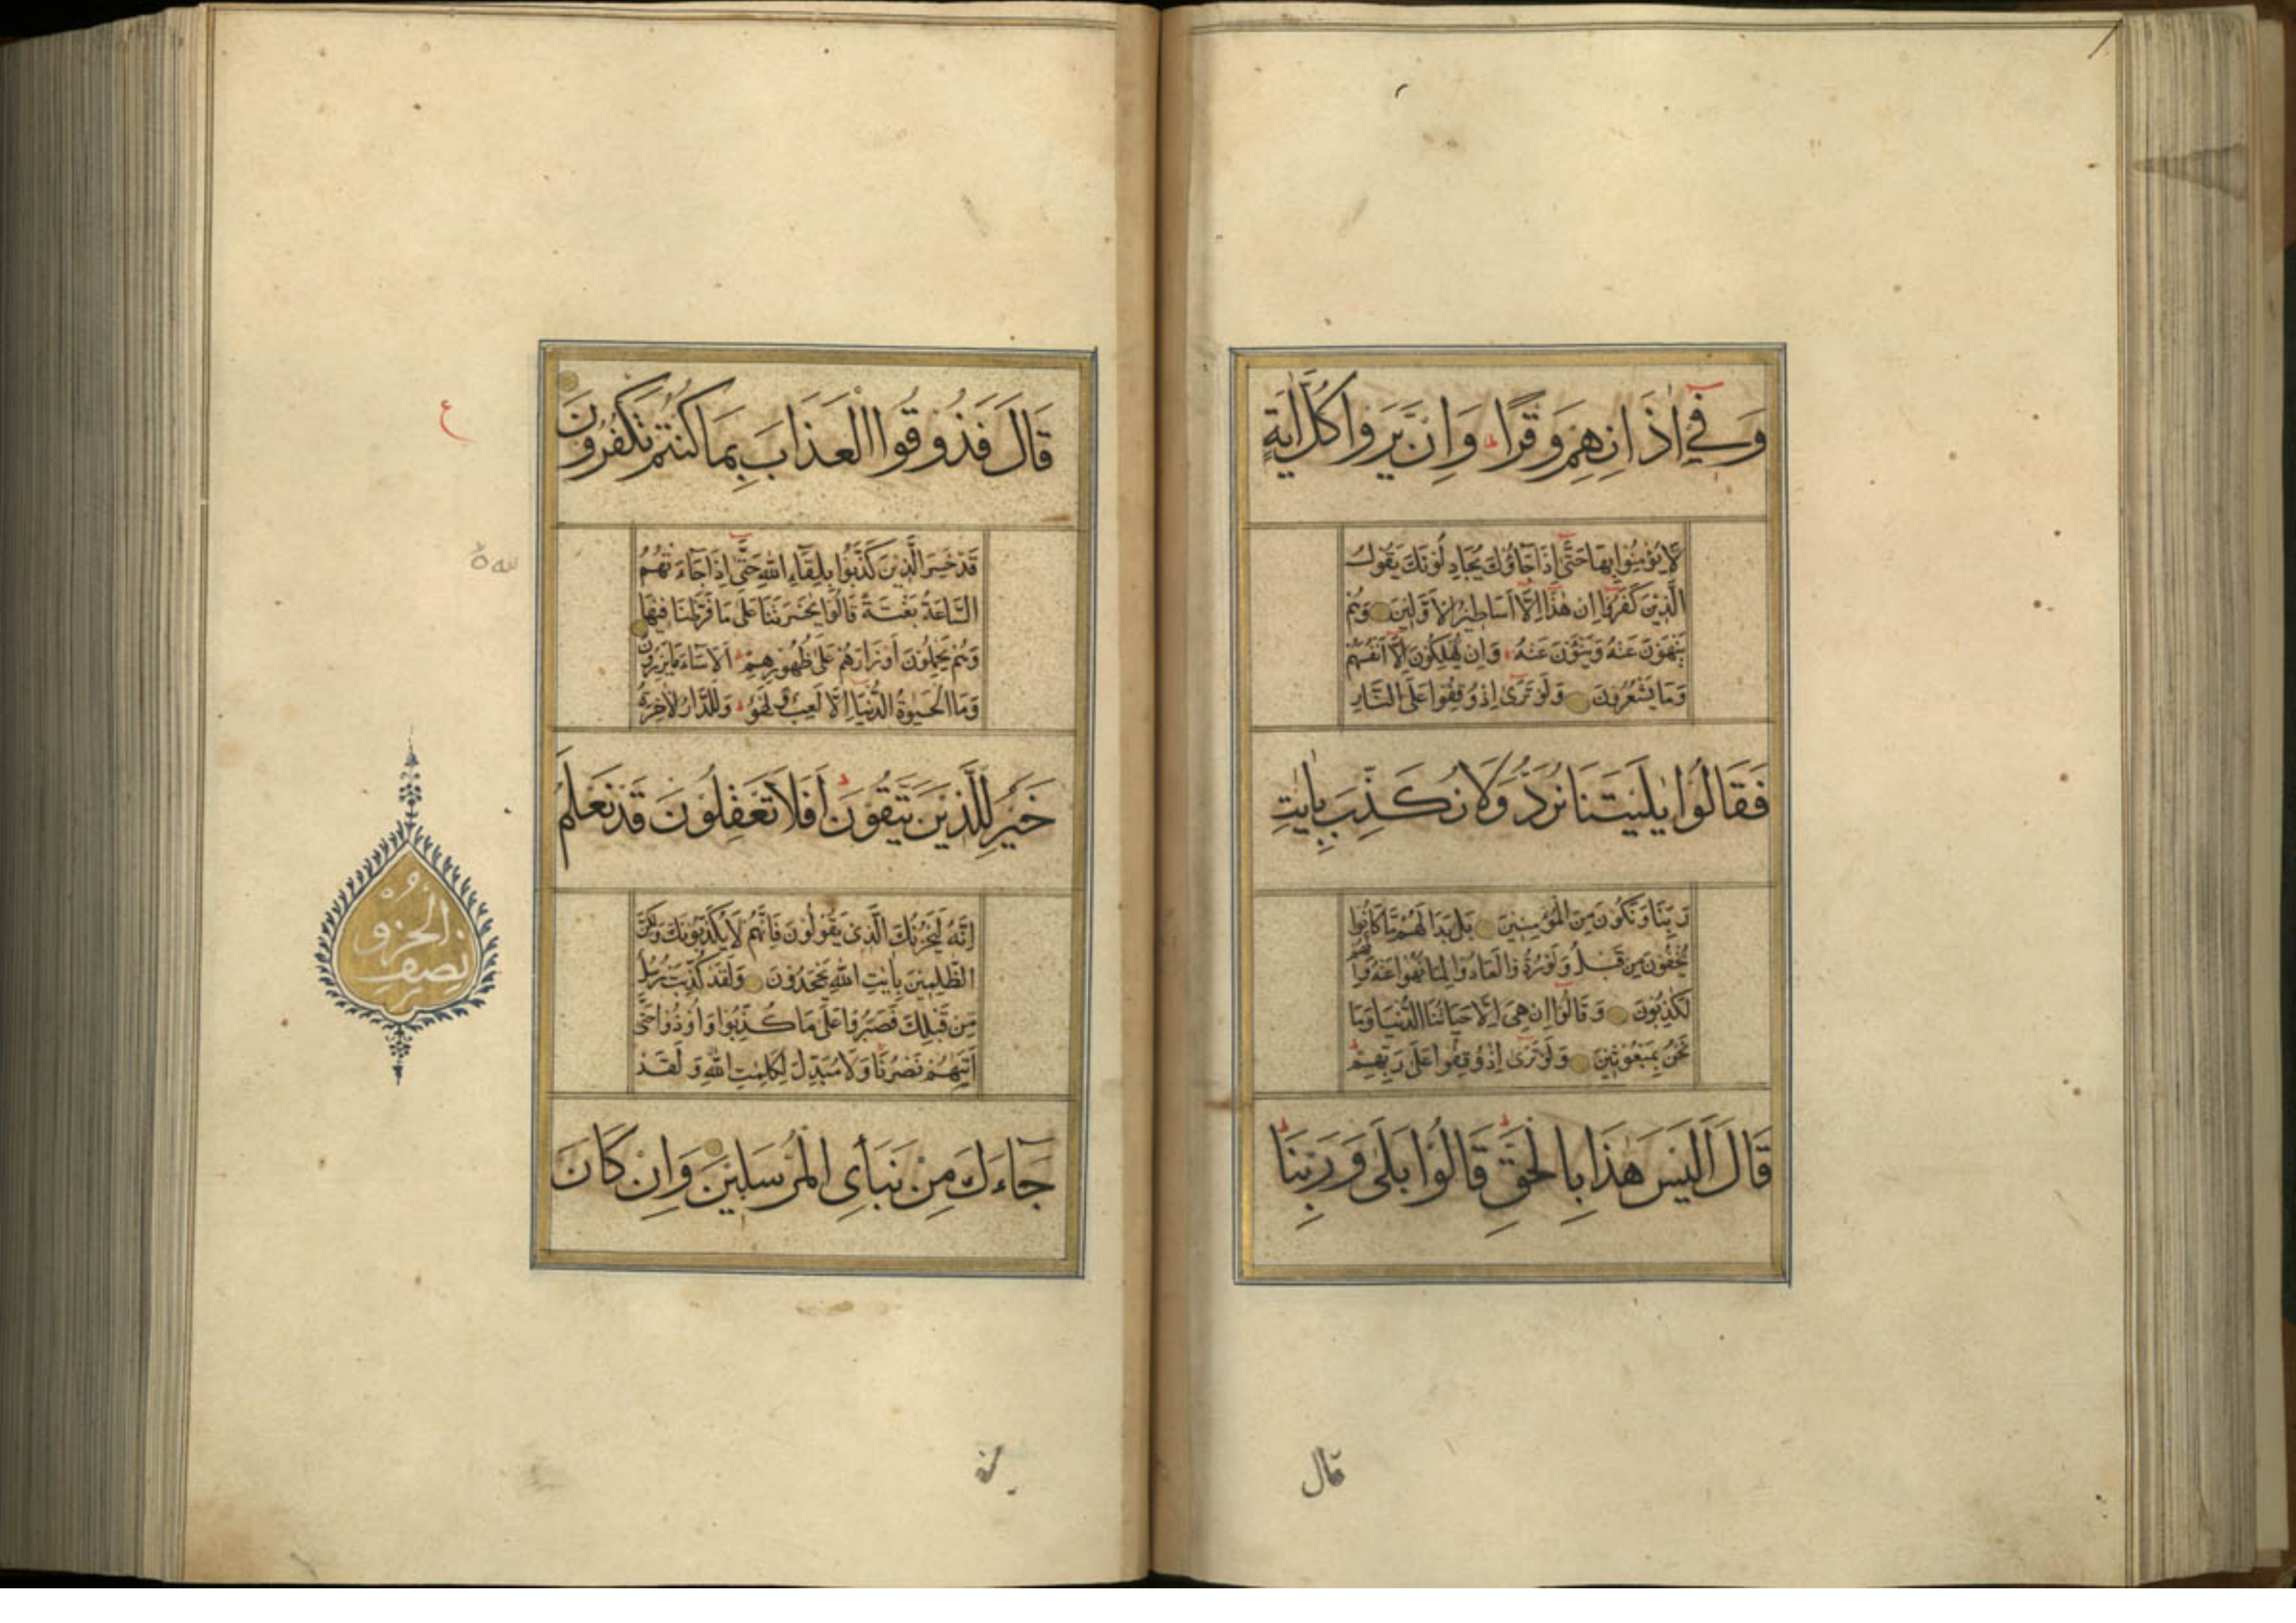 وَفِي اٰذَانِهِمْ وَقْرًا ط وَاِنْ يَرَوْا كُلَّ اٰيَةٍ
لَا يُؤْمِنُوا بِهَا حَتّٰى اِذَا جَاؤُكَ يُجَادِلُونَكَ يَقُولُ
الَّذِينَ كَفَرُوا اِنْ هٰذَا اِلَّا اَسَاطِيرُ الْاَوَّلِينَ وَهُمْ
يَنْهَوْنَ عَنْهُ وَيَنْئَوْنَ عَنْهُ وَاِنْ يُهْلِكُونَ اِلَّا اَنْفُسَهُمْ
وَمَا يَشْعُرُونَ وَلَوْ تَرٰى اِذْ وُقِفُوا عَلَى النَّارِ
فَقَالُوا يٰلَيْتَنَا نُرَدُّ وَلَا نُكَذِّبَ بِاٰيٰتِ
رَبِّنَا وَنَكُونَ مِنَ الْمُؤْمِنِينَ بَلْ بَدَا لَهُمْ مَا كَانُوا
يُخْفُونَ مِنْ قَبْلُ وَلَوْ رُدُّوا لَعَادُوا لِمَا نُهُوا عَنْهُ وَاِنَّهُمْ
لَكٰذِبُونَ وَقَالُوا اِنْ هِيَ اِلَّا حَيَاتُنَا الدُّنْيَا وَمَا
نَحْنُ بِمَبْعُوثِينَ وَلَوْ تَرٰى اِذْ وُقِفُوا عَلٰى رَبِّهِمْ ط
قَالَ اَلَيْسَ هٰذَا بِالْحَقِّ ط قَالُوا بَلٰى وَرَبِّنَا ط
قال
قَالَ فَذُوقُوا الْعَذَابَ بِمَا كُنْتُمْ تَكْفُرُونَ
ع
قَدْ خَسِرَ الَّذِينَ كَذَّبُوا بِلِقَاءِ اللهِ حَتّٰى اِذَا جَاءَتْهُمُ
السَّاعَةُ بَغْتَةً قَالُوا يٰحَسْرَتَنَا عَلٰى مَا فَرَّطْنَا فِيهَا
وَهُمْ يَحْمِلُونَ اَوْزَارَهُمْ عَلٰى ظُهُورِهِمْ ط اَلَا سَاءَ مَا يَزِرُونَ
وَمَا الْحَيٰوةُ الدُّنْيَا اِلَّا لَعِبٌ وَلَهْوٌ ط وَلَلدَّارُ الْاٰخِرَةُ
خَيْرٌ لِلَّذِينَ يَتَّقُونَ ط اَفَلَا تَعْقِلُونَ قَدْ نَعْلَمُ
اِنَّهُ لَيَحْزُنُكَ الَّذِي يَقُولُونَ فَاِنَّهُمْ لَا يُكَذِّبُونَكَ وَلٰكِنَّ
الظّٰلِمِينَ بِاٰيٰتِ اللهِ يَجْحَدُونَ وَلَقَدْ كُذِّبَتْ رُسُلٌ
مِنْ قَبْلِكَ فَصَبَرُوا عَلٰى مَا كُذِّبُوا وَاُوذُوا حَتّٰى
اَتٰيهُمْ نَصْرُنَا وَلَا مُبَدِّلَ لِكَلِمٰتِ اللهِ وَلَقَدْ
جَاءَكَ مِنْ نَبَأِى الْمُرْسَلِينَ وَاِنْ كَانَ
نصف
الحزب